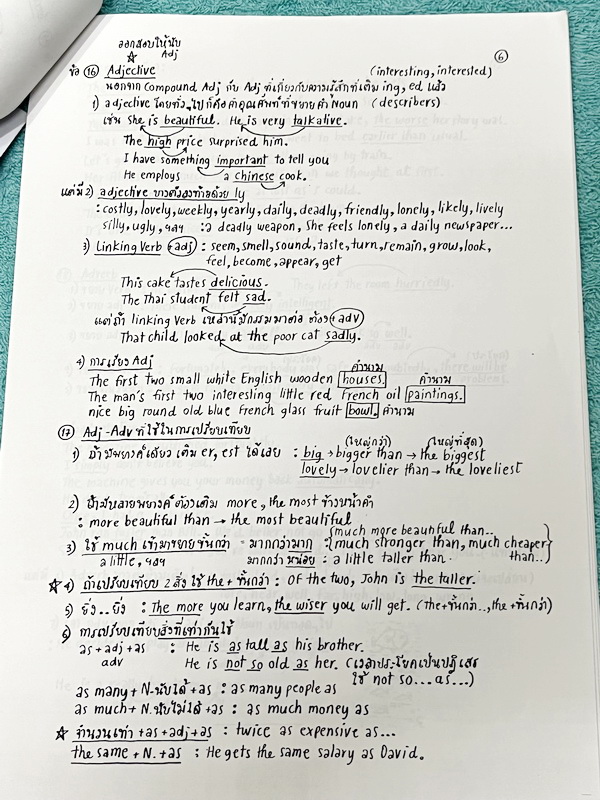 ออกสอบให้นับ
☆ Adj
⑥
ข้อ ⑯ Adjective (interesting, interested)
นอกจาก Compound Adj กับ Adj ที่เกี่ยวกับความรู้สึกที่เติม ing, ed แล้ว
1) adjective โดยทั่วๆไปก็คือคำคุณศัพท์ที่ขยายคำ Noun (describers)
เช่น She is beautiful. He is very talkative.
The high price surprised him.
I have something important to tell you
He employs a chinese cook.
แต่มี 2) adjective บางตัวลงท้ายด้วย ly
: costly, lovely, weekly, yearly, daily, deadly, friendly, lonely, likely, lively
silly, ugly, ฯลฯ : a deadly weapon, She feels lonely, a daily newspaper...
3) Linking Verb + adj : seem, smell, sound, taste, turn, remain, grow, look,
feel, become, appear, get
This cake tastes delicious.
The Thai student felt sad.
แต่ถ้า linking Verb เหล่านี้มีกรรมมาต่อ ต้อง + adv
That child looked at the poor cat sadly.
4) การเรียง Adj
คำนาม
The first two small white English wooden houses. คำนาม
The man's first two interesting little red French oil paintings.
nice big round old blue French glass fruit bowl. คำนาม
⑰ Adj-Adv ที่ใช้ในการเปรียบเทียบ
(ใหญ่กว่า) (ใหญ่ที่สุด)
1) ถ้ามีพยางค์เดียว เติม er, est ได้เลย : big → bigger than → the biggest
lovely → lovelier than → the loveliest
2) ถ้ามีหลายพยางค์ต้องเติม more, the most ข้างหน้าคำ
: more beautiful than → the most beautiful
much more beautiful than..
3) ใช้ much เข้ามาขยายขั้นกว่า = มากกว่ามาก : much stronger than, much cheaper
a little, ฯลฯ มากกว่าหน่อย : a little taller than. than..
☆ 4) ถ้าเปรียบเทียบ 2 สิ่ง ใช้ the + ขั้นกว่า : Of the two, John is the taller.
5) ยิ่ง..ยิ่ง : The more you learn, the wiser you will get. (the+ขั้นกว่า.., the+ขั้นกว่า)
6) การเปรียบเทียบสิ่งที่เท่ากันใช้
as + adj + as : He is as tall as his brother.
adv He is not so old as her. (เวลาประโยคเป็นปฏิเสธ
ใช้ not so...as...)
as many + N.นับได้ + as : as many people as
as much + N.นับไม่ได้ + as : as much money as
☆ จำนวนเท่า + as + adj + as : twice as expensive as...
the same + N. + as : He gets the same salary as David.